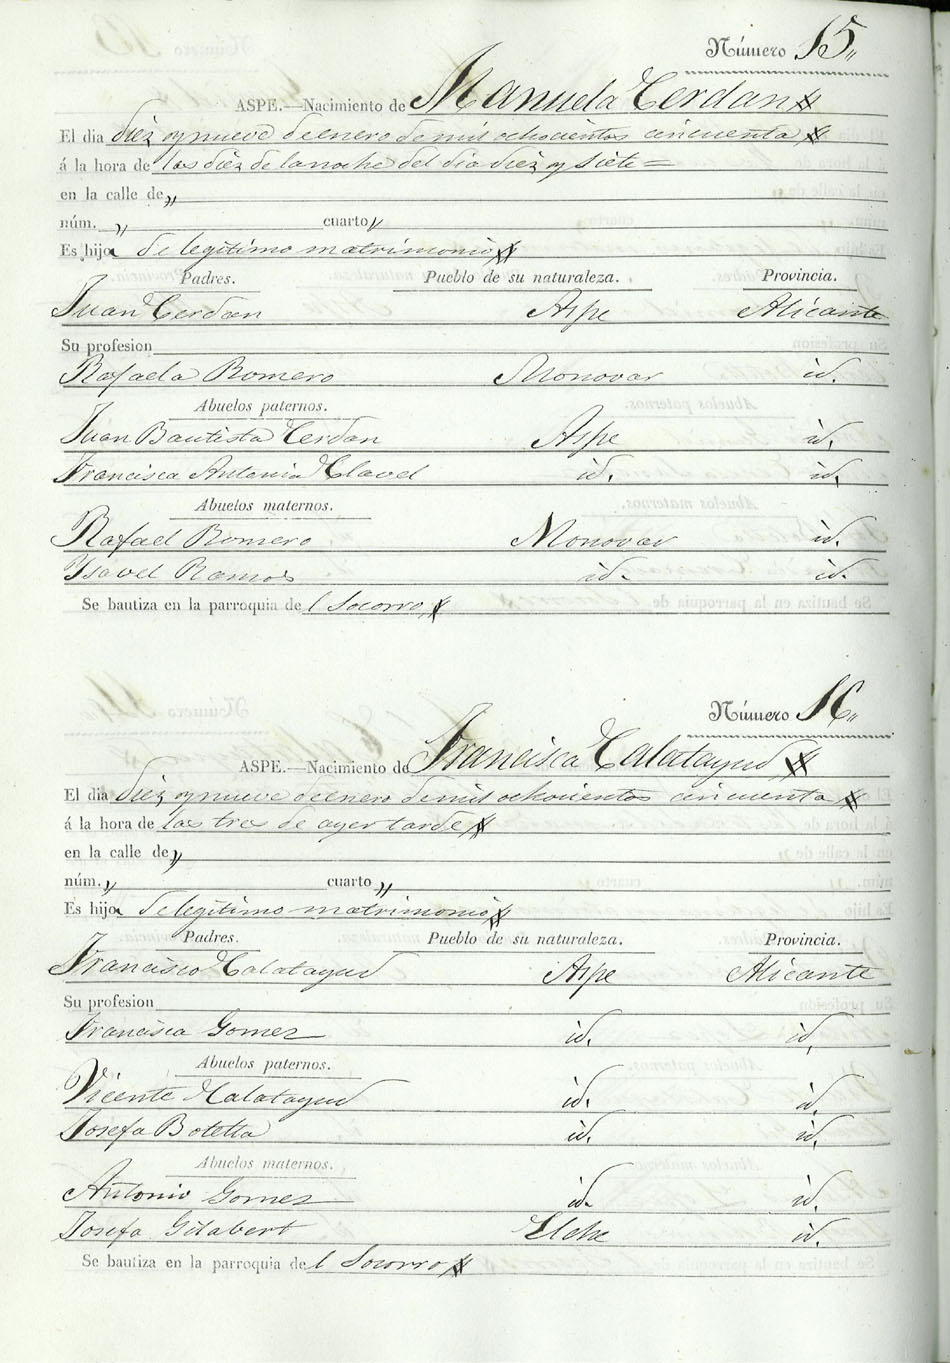 Número 15„
ASPE.—Nacimiento de Manuela Cerdan
El dia diez y nueve de enero de mil ochocientos cincuenta
á la hora de las diez de la noche del dia diez y siete =
en la calle de „
núm. „ cuarto „
Es hija de legitimo matrimonio
Padres. Pueblo de su naturaleza. Provincia.
Juan Cerdan Aspe Alicante
Su profesion
Rafaela Romero Monovar id.
Abuelos paternos.
Juan Bautista Cerdan Aspe id.
Francisca Antonia Clavel id. id.
Abuelos maternos.
Rafael Romero Monovar id.
Ysavel Ramos id. id.
Se bautiza en la parroquia del Socorro
Número 16„
ASPE.—Nacimiento de Francisca Calatayud
El dia diez y nueve de enero de mil ochocientos cincuenta
á la hora de las tres de ayer tarde
en la calle de „
núm. „ cuarto „
Es hija de legitimo matrimonio
Padres. Pueblo de su naturaleza. Provincia.
Francisco Calatayud Aspe Alicante
Su profesion
Francisca Gomez id. id.
Abuelos paternos.
Vicente Calatayud id. id.
Josefa Botella id. id.
Abuelos maternos.
Antonio Gomez id. id.
Josefa Gilabert Elche id.
Se bautiza en la parroquia del Socorro